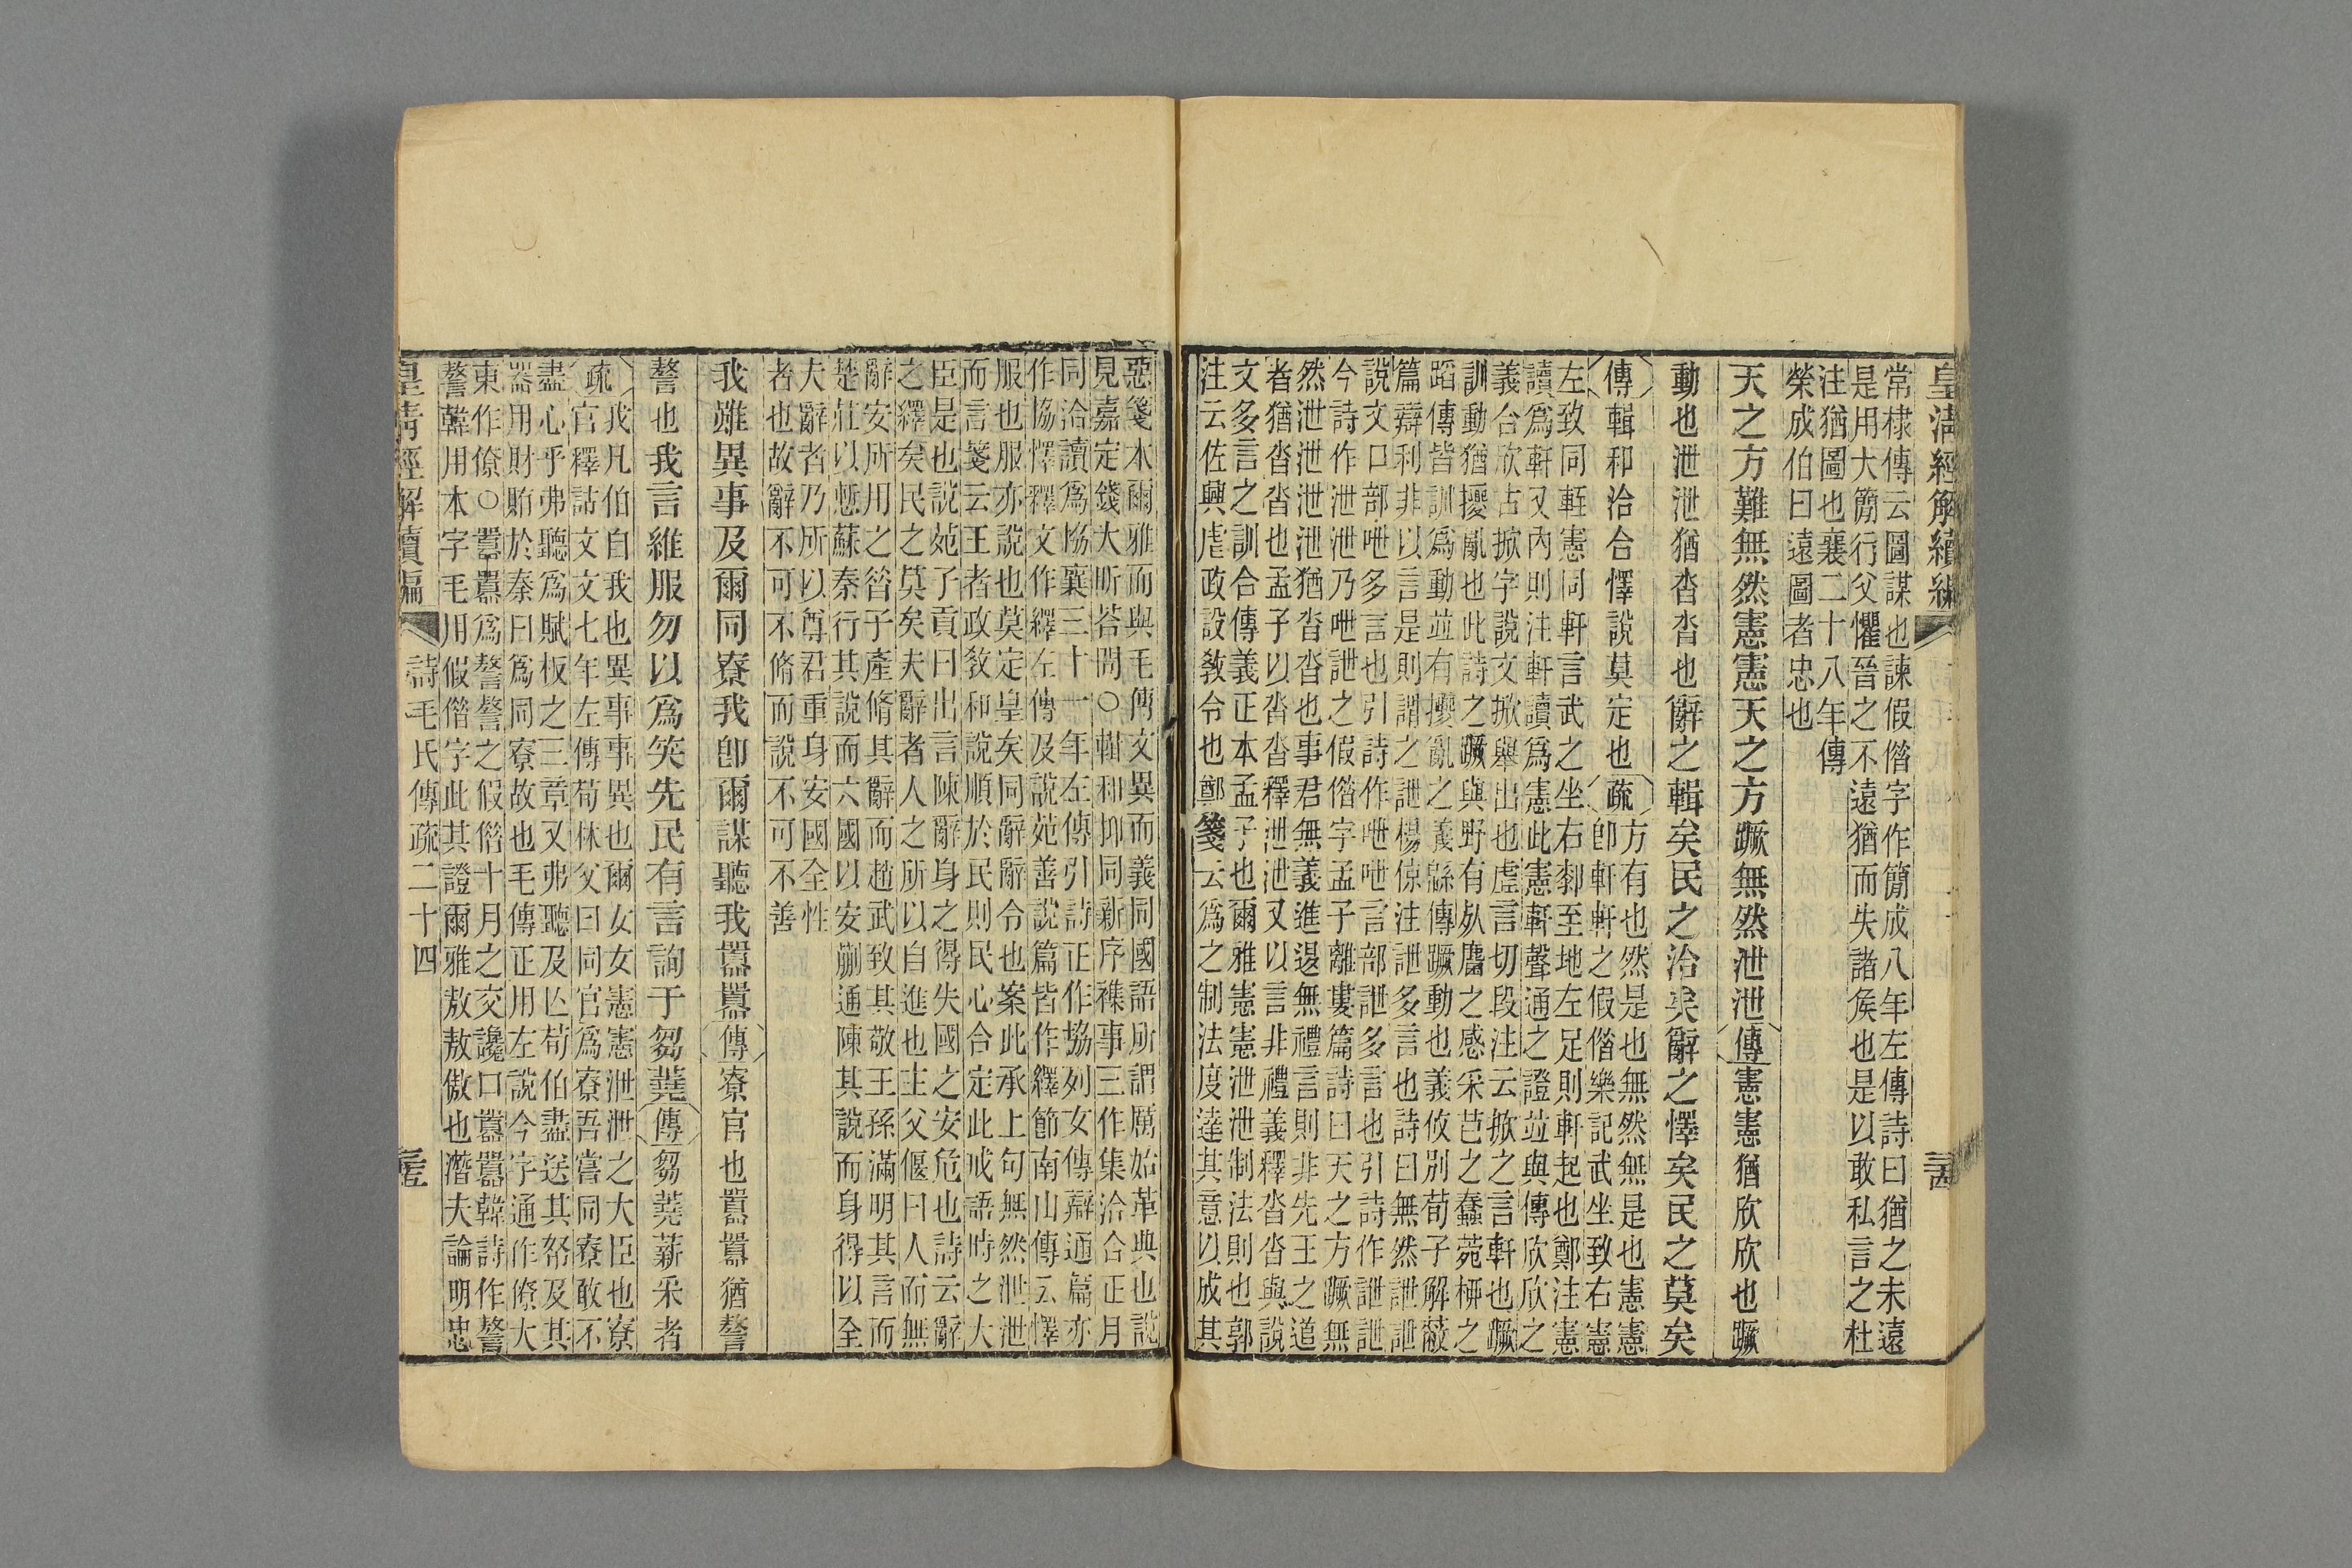 皇清經解續編
常棣傳云圖謀也諫假偺字作簡成八年左傳詩曰猶之未遠
是用大簡行父懼晉之不遠猶而失諸矦也是以敢私言之杜
注猶圖也襄二十八年傳
榮成伯曰遠圖者忠也
天之方難無然憲憲天之方蹶無然泄泄傳憲憲猶欣欣也蹶
動也泄泄猶沓沓也辭之輯矣民之洽矣辭之懌矣民之莫矣
傳輯和洽合懌說莫定也疏
方有也然是也無然無是也憲憲
卽軒軒之假偺樂記武坐致右憲
左致同輊憲同軒言武之坐右厀至地左足則軒起也鄭注憲
讀爲軒又內則注軒讀爲憲此憲軒聲通之證竝與傳欣欣之
義合欣古掀字說文掀舉出也虛言切段注云掀之言軒也蹶
訓動猶擾亂也此詩之蹶與野有𣦸麕之感采芑之蠢菀栁之
蹈傳皆訓爲動竝有擾亂之義緜傳蹶動也義攸別荀子解蔽
篇辯利非以言是則謂之詍楊倞注詍多言也詩曰無然詍詍
說文口部呭多言也引詩作呭呭言部詍多言也引詩作詍詍
今詩作泄泄乃呭詍之假偺字孟子離婁篇詩曰天之方蹶無
然泄泄泄泄猶沓沓也事君無義進退無禮言則非先王之道
者猶沓沓也孟子以沓沓釋泄泄又以言非禮義釋沓沓與說
文多言之訓合傳義正本孟子也爾雅憲憲泄泄制法則也郭
注云佐興虐政設敎令也鄭箋云爲之制法度逹其意以成其
惡箋本爾雅而與毛傳文異而義同國語所謂厲始革典也說
見嘉定錢大昕荅問○輯和抑同新序襍事三作集洽合正月
同洽讀爲協襄三十一年左傳引詩正作協列女傳辯通篇亦
作協懌釋文作繹左傳及說苑善說篇皆作繹節南山傳云懌
服也服亦說也莫定皇矣同辭辭令也案此承上句無然泄泄
而言箋云王者政敎和說順於民則民心合定此戒語時之大
臣是也說苑子貢曰出言陳辭身之得失國之安危也詩云辭
之繹矣民之莫矣夫辭者人之所以自進也主父偃曰人而無
辭安所用之昝子產脩其辭而趙武致其敬王孫滿明其言而
楚莊以慙蘇秦行其說而六國以安蒯通陳其說而身得以全
夫辭者乃所以尊君重身安國全性
者也故辭不可不脩而說不可不善
我雖異事及爾同寮我卽爾謀聽我囂囂傳寮官也囂囂猶警
警也我言維服勿以爲笑先民有言詢于芻蕘傳芻蕘薪采者
疏
我凡伯自我也異事事異也爾女女憲憲泄泄之大臣也寮
官釋詁文文七年左傳荀林父曰同官爲寮吾嘗同寮敢不
盡心乎弗聽爲賦板之三章又弗聽及亾荀伯盡送其帑及其
器用財賄於秦曰爲同寮故也毛傳正用左說今字通作僚大
東作僚○囂囂爲謷謷之假偺十月之交讒口囂囂韓詩作謷
謷韓用本字毛用假偺字此其證爾雅敖敖傲也潛夫論明忠
皇清經解續編
詩毛氏傳疏二十四